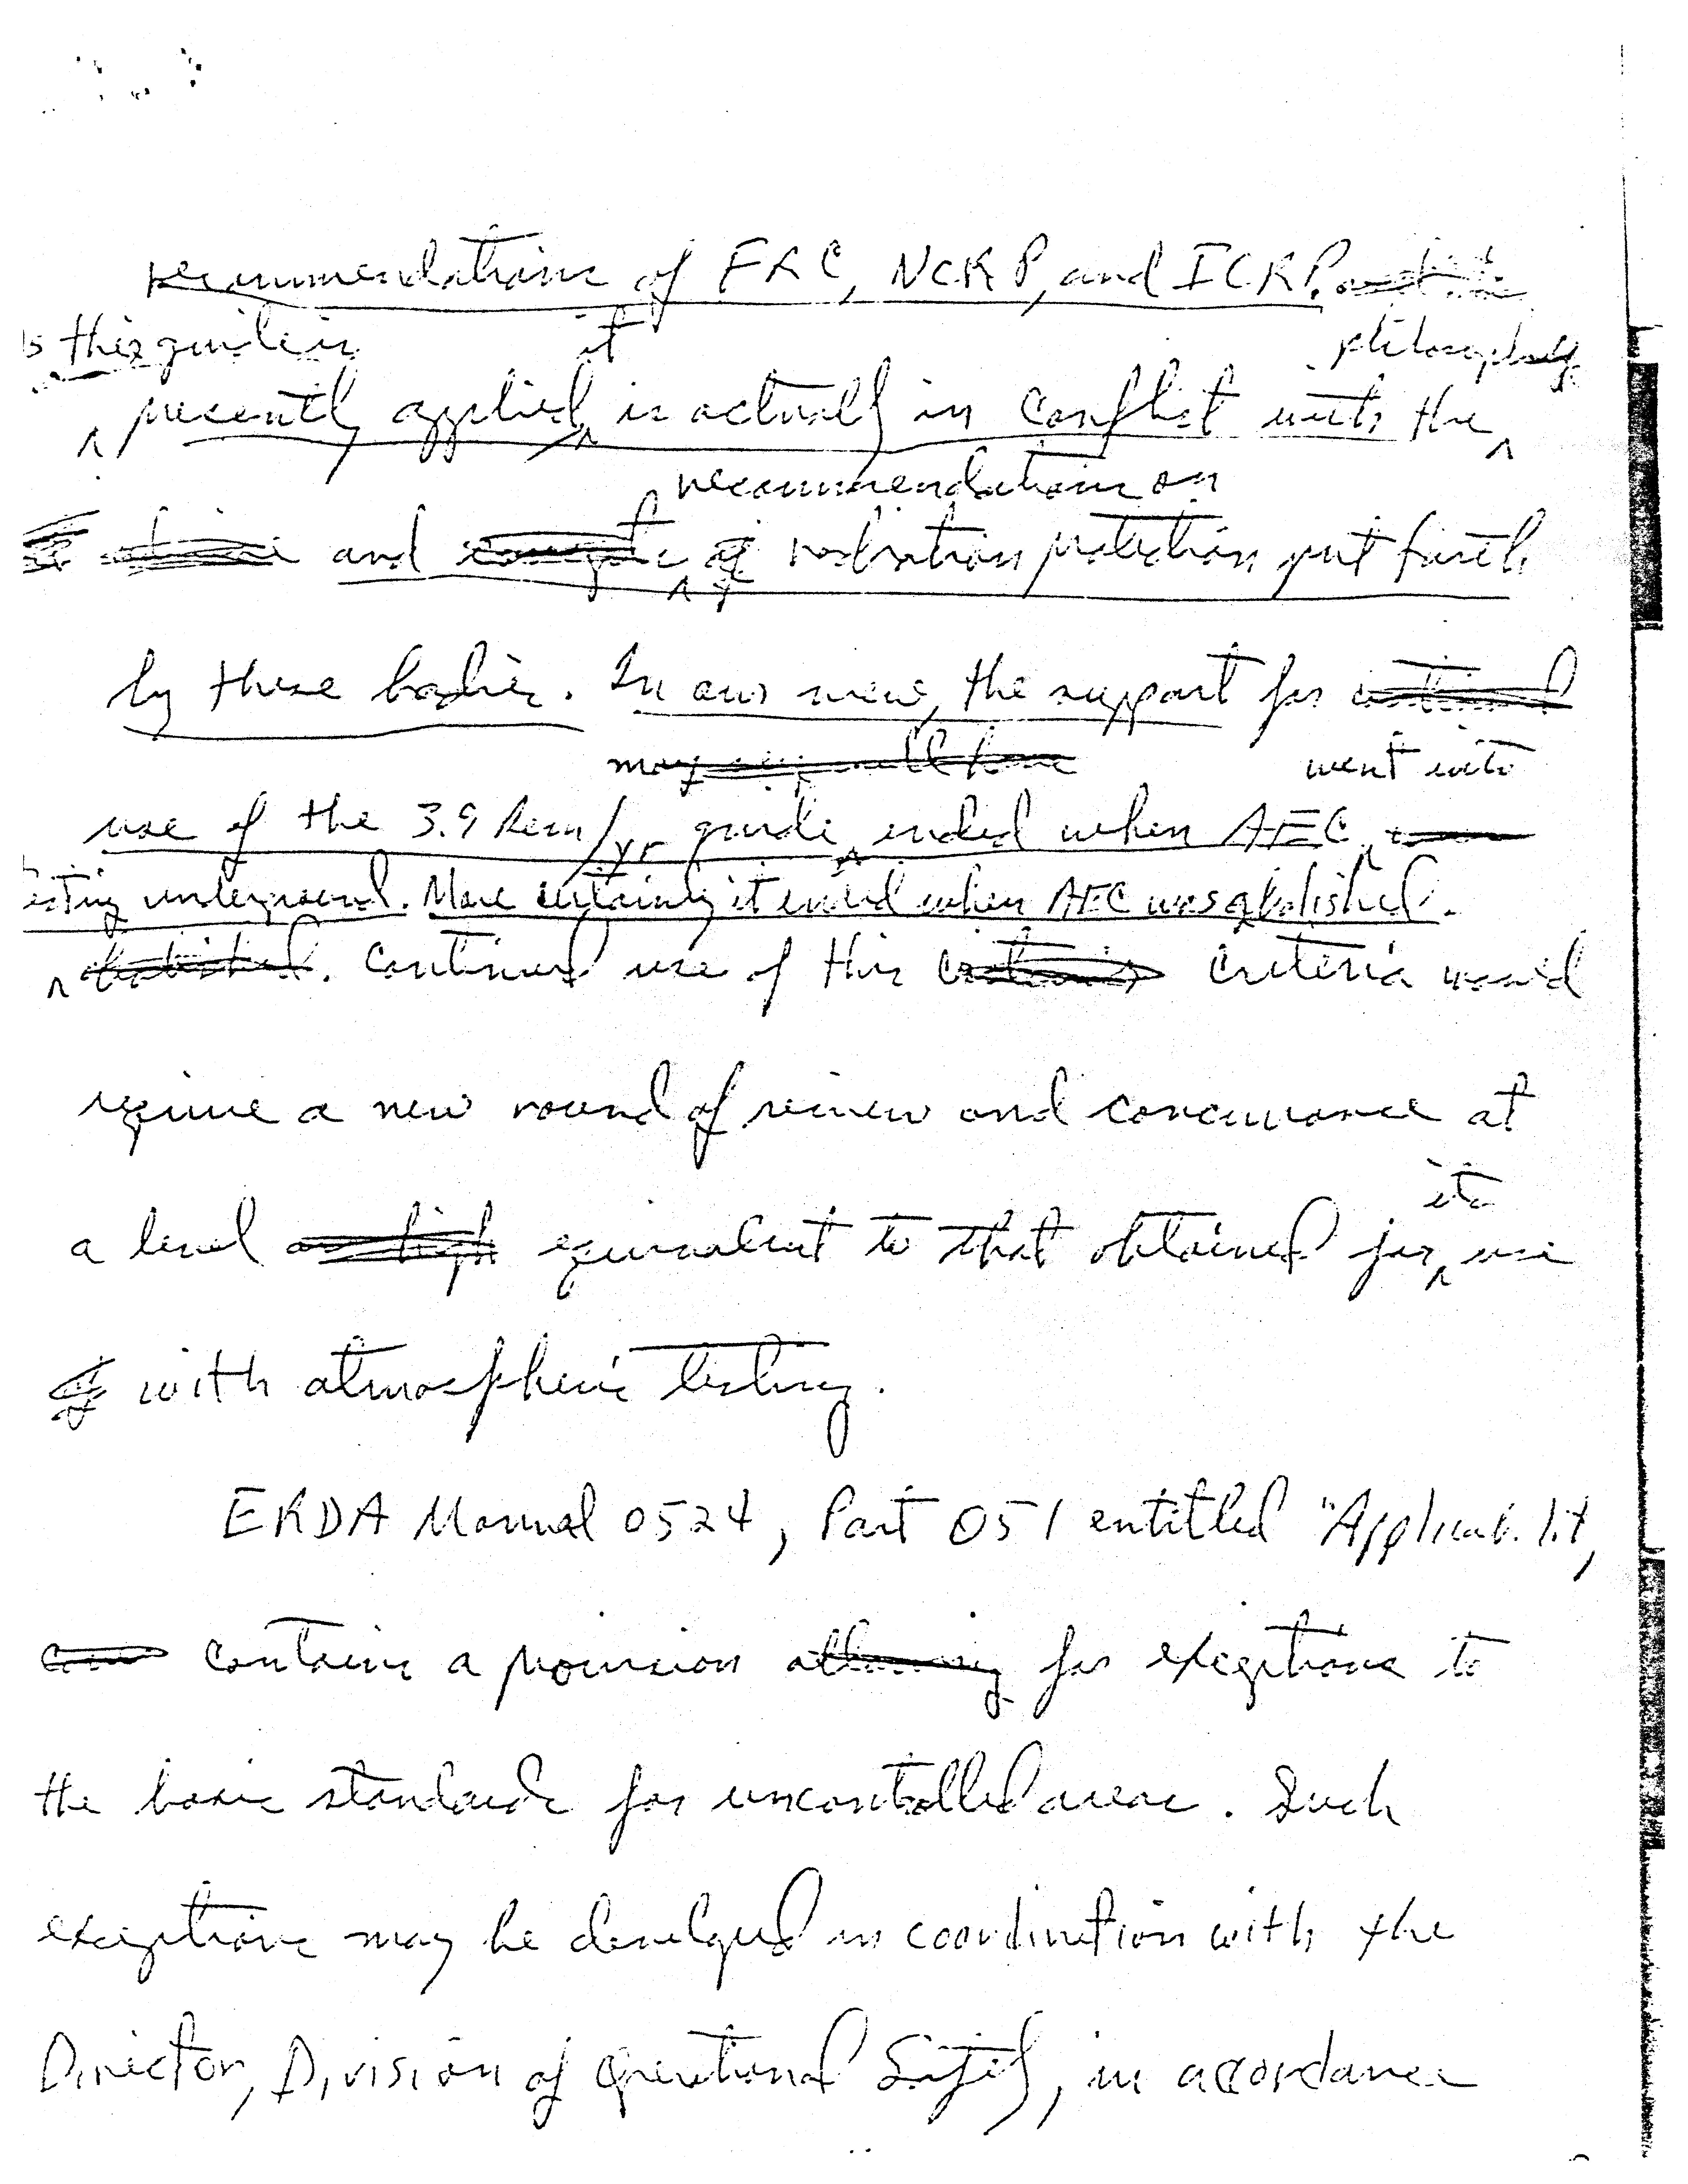 recommendations of FRC, NCRP, and ICRP.
this guide is it philosophy
presently applied, is actually in conflict with the
recommendations on
and of radiation protection put forth
by these bodies. In our view, the support for
may very well have went into
use of the 3.9 Rem/yr guide ended when AEC
esting underground. More certainly it ended when AEC was abolished.
abolished. Continued use of this criteria would
require a new round of review and concurrence at
its
a level as high equivalent to that obtained for use
of with atmospheric testing.
ERDA Manual 0524, Part 051 entitled "Applicabilit,
contains a provision allowing for exceptions to
the basic standards for uncontrolled areas. Such
exceptions may be developed in coordination with the
Director, Division of Operational Safety, in accordance